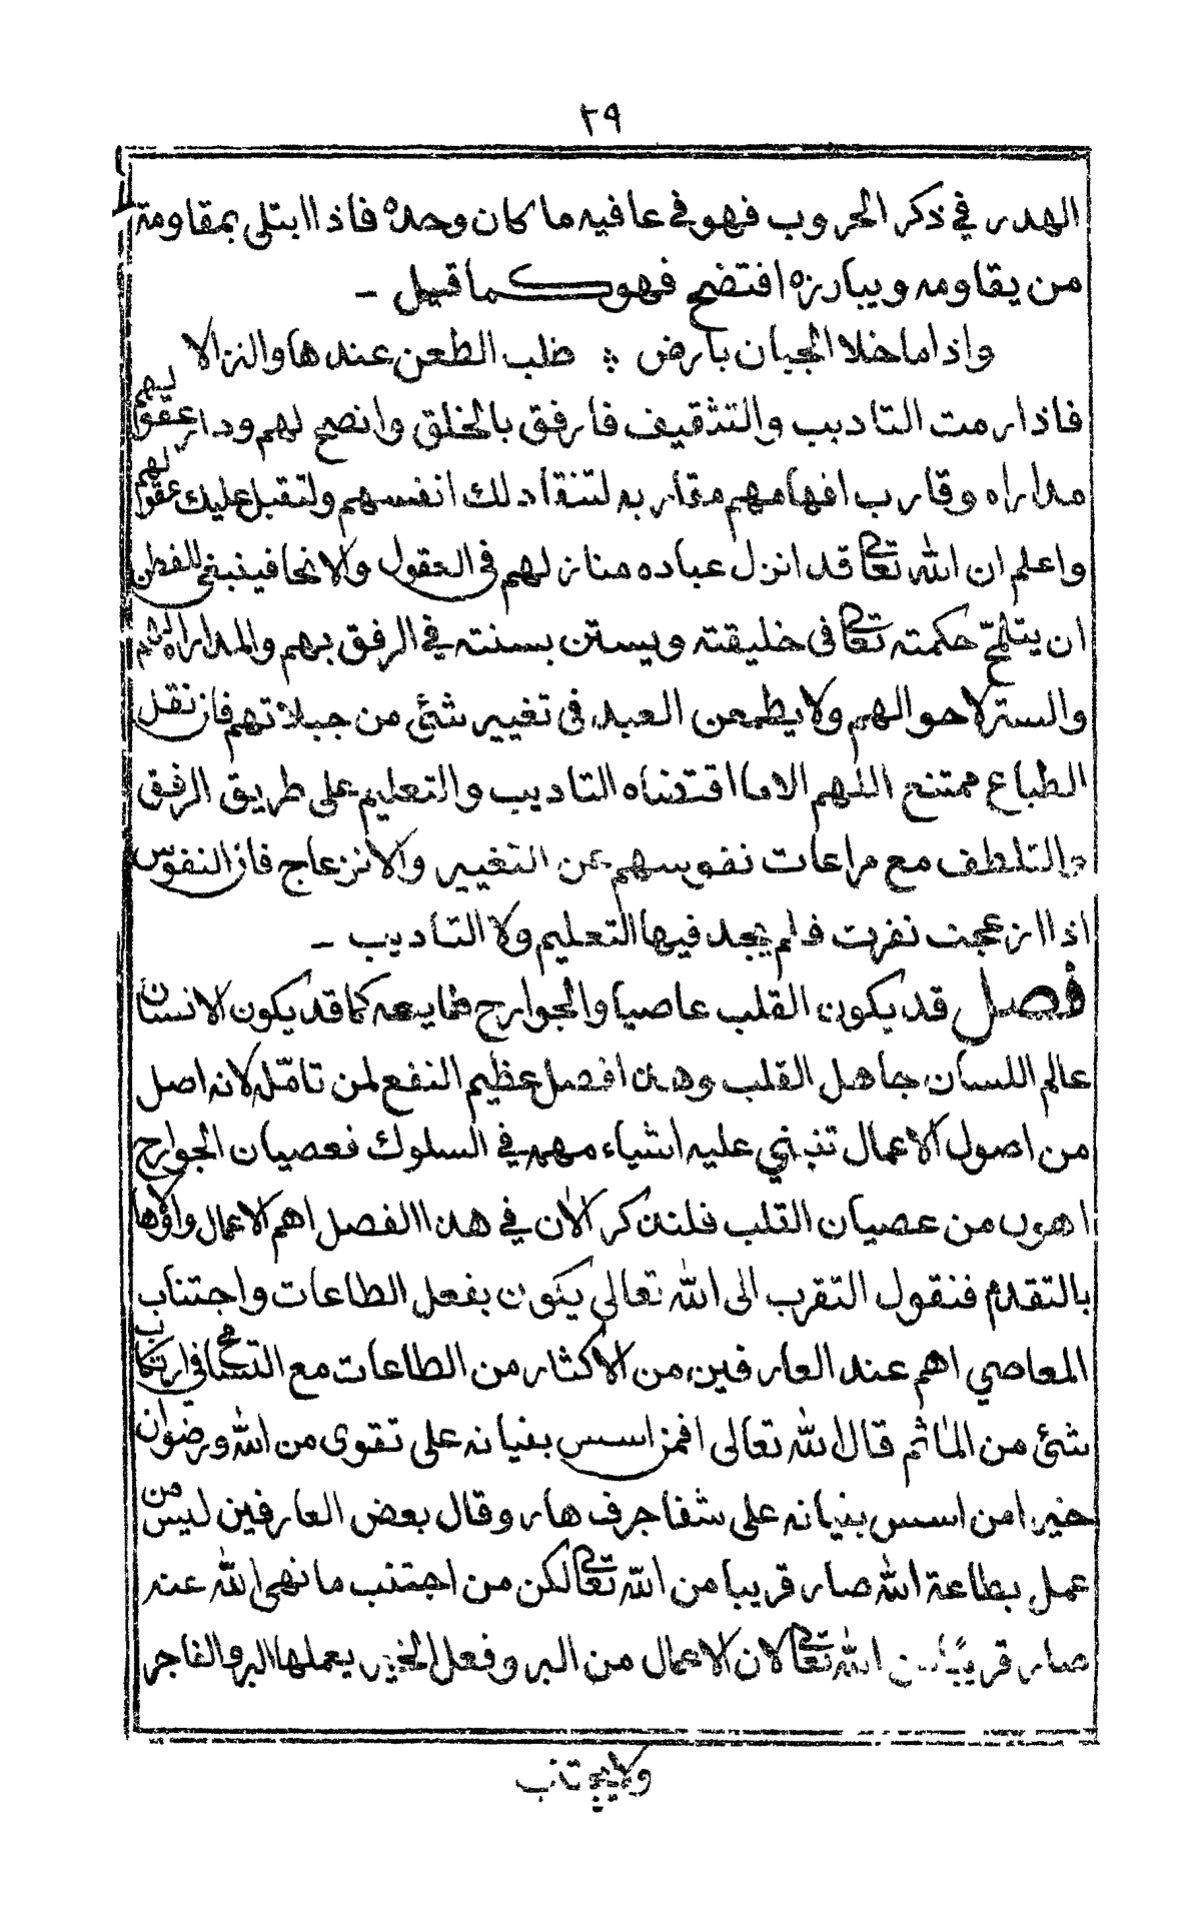 ٢٩
الهدر في ذكر الحروب فهو في عافيه ما كان وحده فاذا ابتلى بمقاومة
من يقاومه ويبارزه افتضح فهو كما قيل –
واذا ما خلا الجبان بارض ؞ طلب الطعن عندها والنزالا
فاذا رمت التاديب والتثقيف فارفق بالخلق وانصح لهم ودار عقولهم
مداراه وقارب افهامهم مقاربه لتنقاد لك انفسهم ولتقبل عليك عقولهم
واعلم ان الله تعالى قد انزل عباده منازلهم في العقول والانحا فينبغي للفطن
ان يتلمح حكمته تعالى في خليقته ويستن بسنته في الرفق بهم والمداراه لهم
والستر لاحوالهم ولا يطمعن العبد في تغيير شئ من جبلاتهم فان نقل
الطباع ممتنع اللهم الا ما اقتضاه التاديب والتعليم على طريق الرفق
والتلطف مع مراعات نفوسهم عن التغيير والانزعاج فان النفوس
اذا انزعجت نفرت فلم يجد فيها التعليم ولا التاديب –
فصل قد يكون القلب عاصيا والجوارح طايعه كما قد يكون الانسان
عالم اللسان جاهل القلب وهذا فصل عظيم النفع لمن تامّله لانه اصل
من اصول الاعمال تنبني عليه اشياء مهمه في السلوك فعصيان الجوارح
اهون من عصيان القلب فلنذكر الان في هذا الفصل اهم الاعمال واولاها
بالتقدم فنقول التقرب الى الله تعالى يكون بفعل الطاعات واجتناب
المعاصي اهم عند العارفين من الاكثار من الطاعات مع التسامح في ارتكاب
شئ من المآثم قال الله تعالى افمن اسس بنيانه على تقوى من الله ورضوان
خير امن اسس بنيانه على شفا جرف هار وقال بعض العارفين ليس من
عمل بطاعة الله صار قريبا من الله تعالى لكن من اجتنب ما نهى الله عنه
صار قريبًا من الله تعالى لان الاعمال من البر وفعل الخير يعملها البر والفاجر
ولا يجتنب